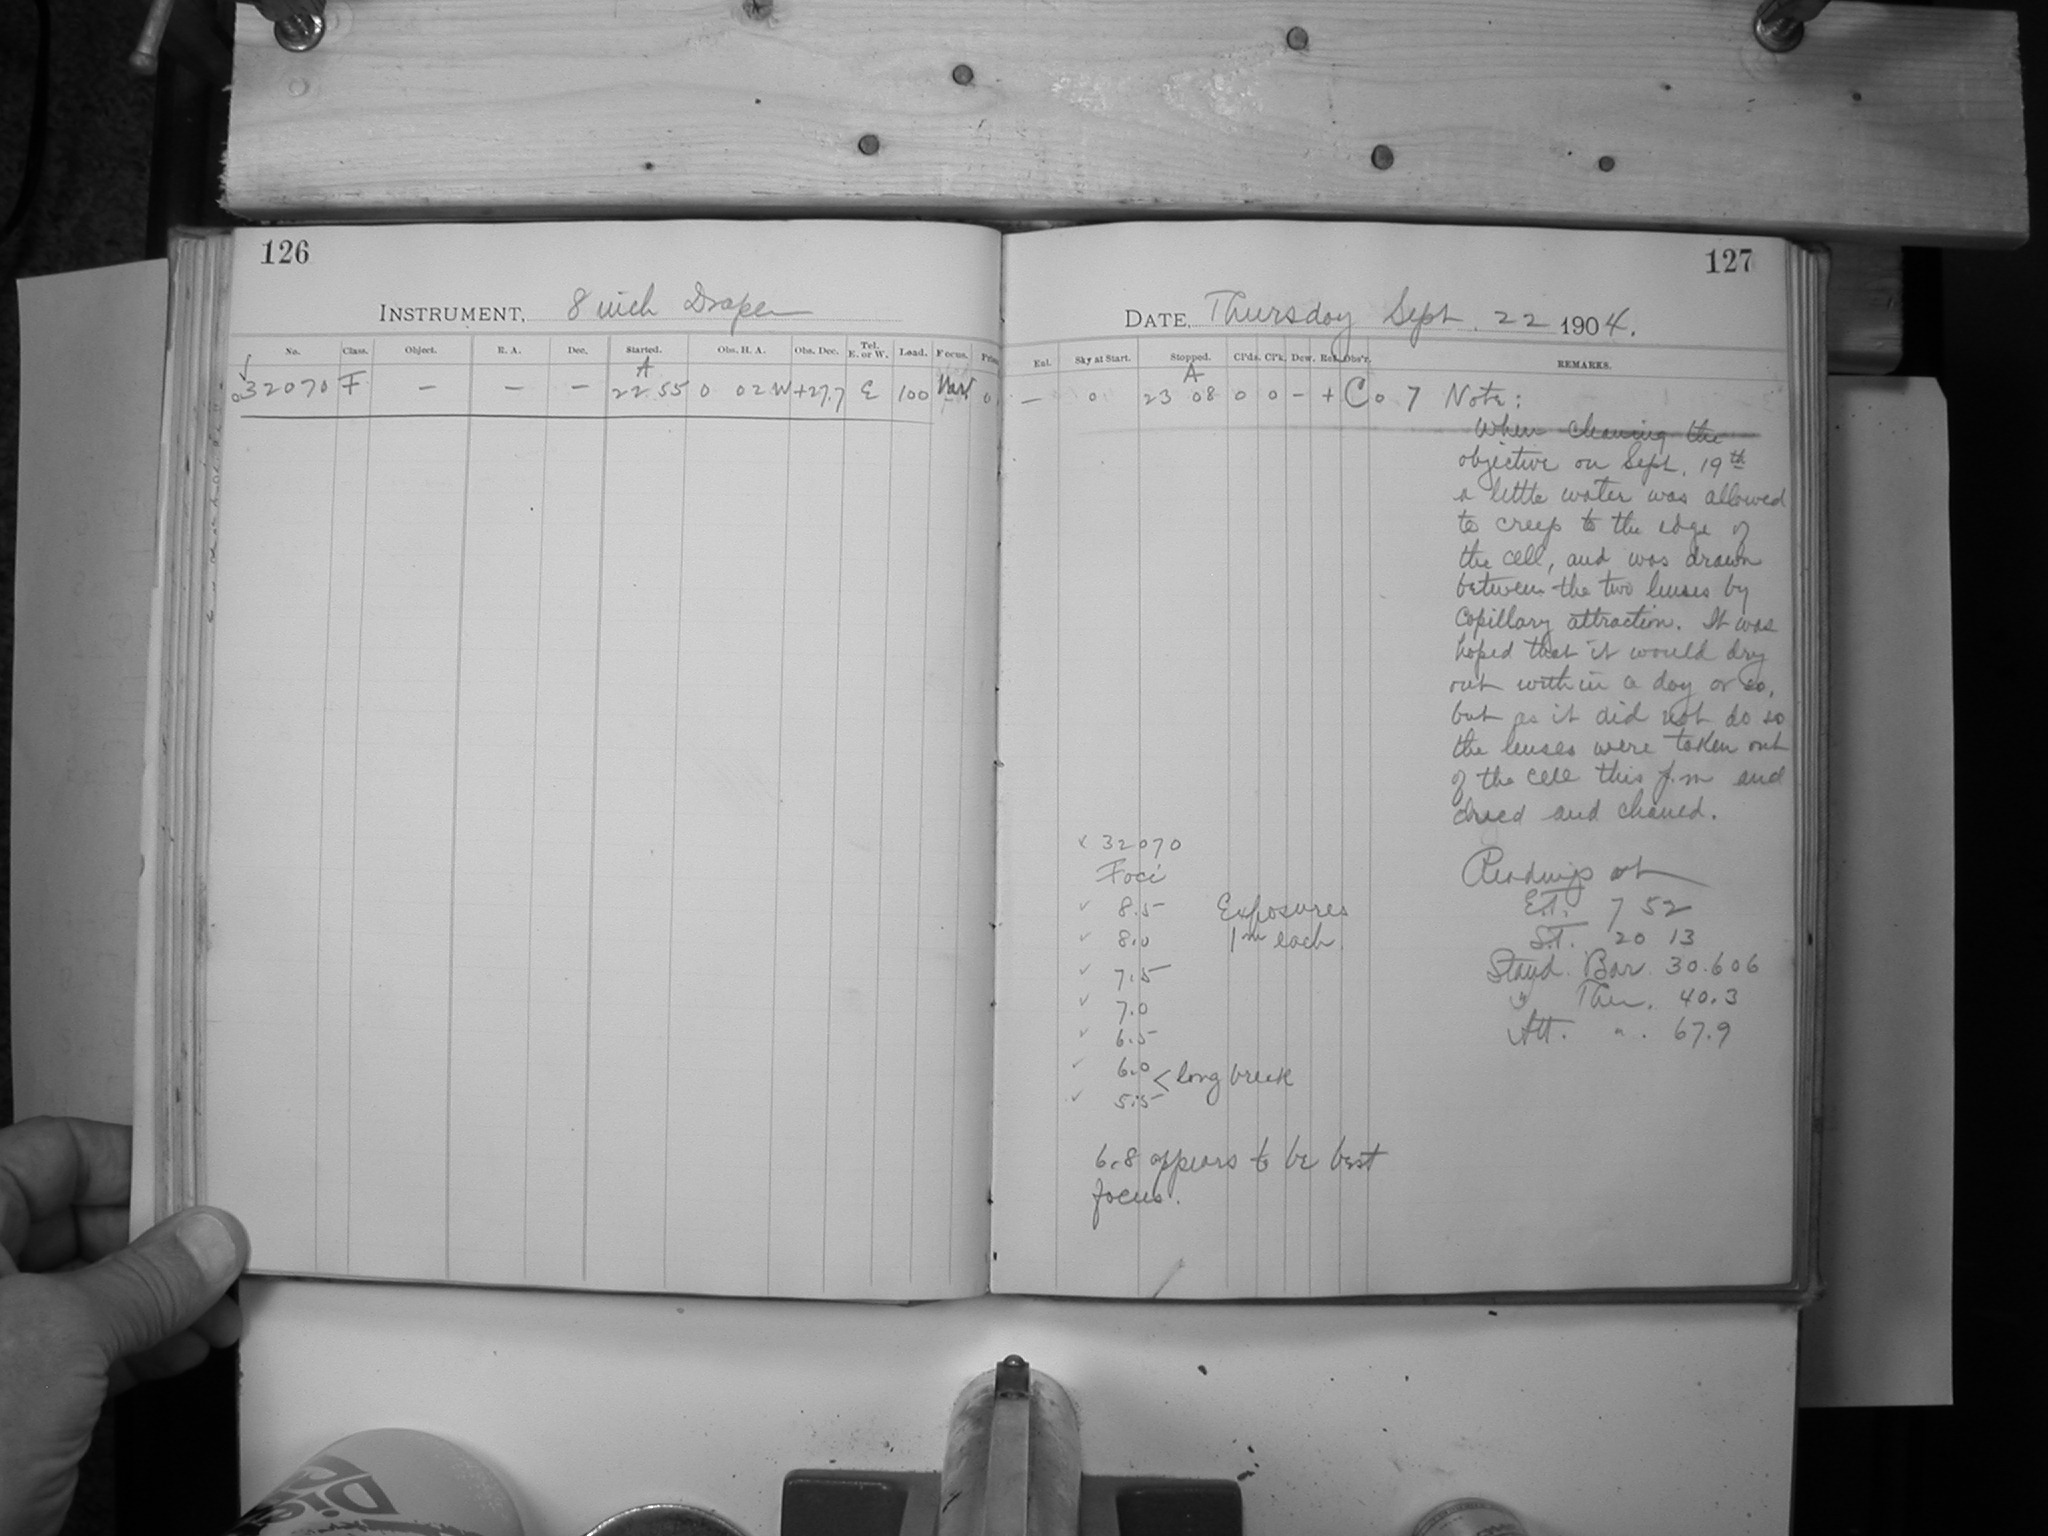 126
INSTRUMENT, 8 inch Draper
No. Class. Object. R. A. Dec. Started. Obs. H. A. Obs. Dec. Tel. E. or W. Load. Focus.
A
32070 F — — — 22 55 0 02 W +27.7 E 100 Var
127
DATE, Thursday Sept. 22 1904.
Enl. Sky at Start. Stopped. Cl'ds. Cl'k. Dew. Rel. Obs'r. REMARKS.
A
— 0 23 08 0 0 — + Co 7 Note:
When cleaning the
objective on Sept. 19th
a little water was allowed
to creep to the edge of
the cell, and was drawn
between the two lenses by
Capillary attraction. It was
hoped that it would dry
out within a day or so,
but as it did not do so
the lenses were taken out
of the cell this p.m and
dried and cleaned.
32070
Foci
8.5 Exposures
8.0 1m each.
7.5
7.0
6.5
6.0
< long break
5.5
6.8 appears to be best
focus.
Readings at
E.T. 7 52
S.T. 20 13
Stand. Bar. 30.606
" Ther. 40.3
Att. ". 67.9
Die